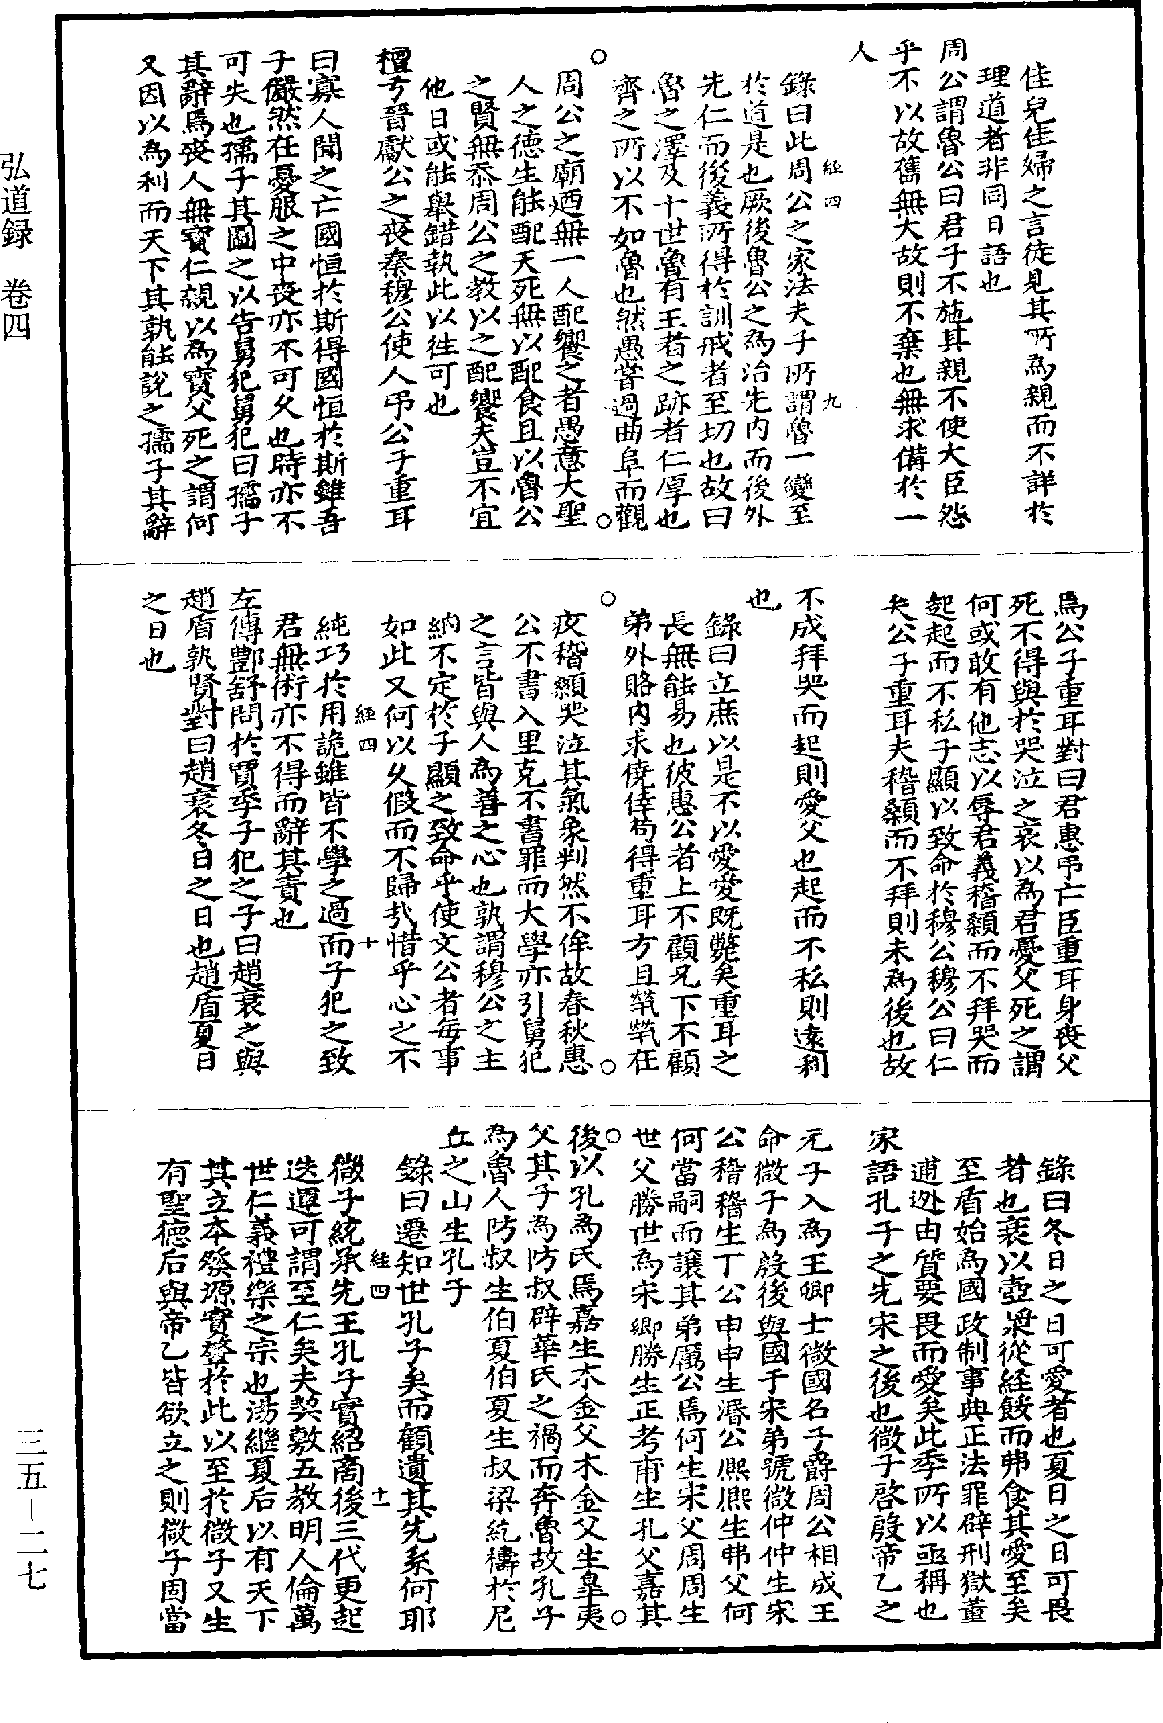 佳兒佳婦之言徒見其所為親而不詳於
理道者非同日語也
周公謂魯公曰君子不施其親不使大臣怨
乎不以故舊無大故則不棄也無求備於一
人
經四 九
錄曰此周公之家法夫子所謂魯一變至
於道是也厥後魯公之為治先內而後外
先仁而後義所得於訓戒者至切也故曰
魯之澤及十世魯有王者之跡者仁厚也
齊之所以不如魯也然愚嘗過曲阜而觀
周公之廟廼無一人配饗之者愚意大聖
人之德生能配天死無以配食且以魯公
之賢無忝周公之教以之配饗夫豈不宜
他日或能舉錯執此以往可也
檀弓晉獻公之喪秦穆公使人弔公子重耳
曰寡人聞之亡國恒於斯得國恒於斯雖吾
子儼然在憂服之中喪亦不可久也時亦不
可失也孺子其圖之以告舅犯舅犯曰孺子
其辭焉喪人無寶仁親以為寶父死之謂何
又因以為利而天下其孰能說之孺子其辭
焉公子重耳對曰君惠弔亡臣重耳身喪父
死不得與於哭泣之哀以為君憂父死之謂
何或敢有他志以辱君義稽顙而不拜哭而
起起而不私子顯以致命於穆公穆公曰仁
矣公子重耳夫稽顙而不拜則未為後也故
不成拜哭而起則愛父也起而不私則遠利
也
錄曰立庶以是不以愛愛既斃矣重耳之
長無能易也彼惠公者上不顧兄下不顧
弟外賂內求僥倖苟得重耳方且煢煢在
疚稽顙哭泣其氣象判然不侔故春秋惠
公不書入里克不書罪而大學亦引舅犯
之言皆與人為善之心也孰謂穆公之主
納不定於子顯之致命乎使文公者每事
如此又何以久假而不歸哉惜乎心之不
經四 十
純巧於用詭雖皆不學之過而子犯之致
君無術亦不得而辭其責也
左傳酆舒問於賈季子犯之子曰趙衰之與
趙盾孰賢對曰趙衰冬日之日也趙盾夏日
之日也
錄曰冬日之日可愛者也夏日之日可畏
者也衰以壺漿從經餒而弗食其愛至矣
至盾始為國政制事典正法罪辟刑獄董
逋逃由質要畏而愛矣此季所以亟稱也
家語孔子之先宋之後也微子啓殷帝乙之
元子入為王卿士微國名子爵周公相成王
命微子為殷後與國于宋弟號微仲仲生宋
公稽稽生丁公申申生湣公熙熙生弗父何
何當嗣而讓其弟厲公焉何生宋父周周生
世父勝世為宋卿勝生正考甫生孔父嘉其
後以孔為氏焉嘉生木金父木金父生臯夷
父其子為防叔辟華氏之禍而奔魯故孔子
為魯人防叔生伯夏伯夏生叔梁紇禱於尼
丘之山生孔子
錄曰遷知世孔子矣而顧遺其先系何耶
經四 十一
微子統承先王孔子實紹商後三代更起
迭運可謂至仁矣夫契敷五教明人倫萬
世仁義禮樂之宗也湯繼夏后以有天下
其立本發源實肇於此以至於微子又生
有聖德后與帝乙皆欲立之則微子固當
弘道録 卷四
三五－二七